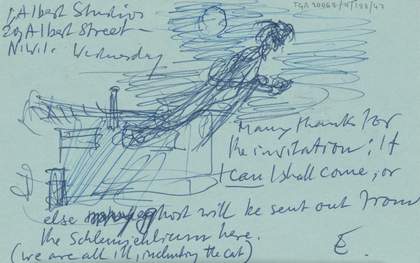 TGA 20062/4/188/47
7 Albert Studios
29 Albert Street –
N.W.1. Wednesday
Many thanks for
the invitation: If
I can I shall come, or
else my ghost will be sent out from
the Schlemihlium here.
(we are all ill, including the cat)
E.